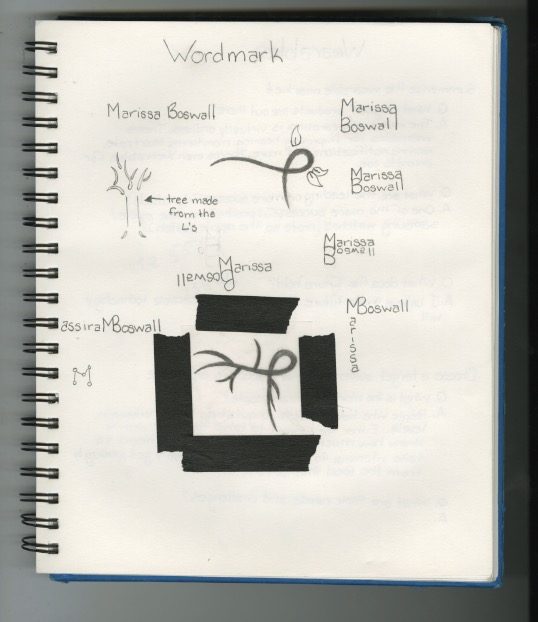 Wordmark
Marissa Boswall
Marissa
Boswall
tree made
from the
L's
Marissa
Boswall
Marissa
Boswall
Marissa
Boswall
MBoswall
arissa
assiraMBoswall
M